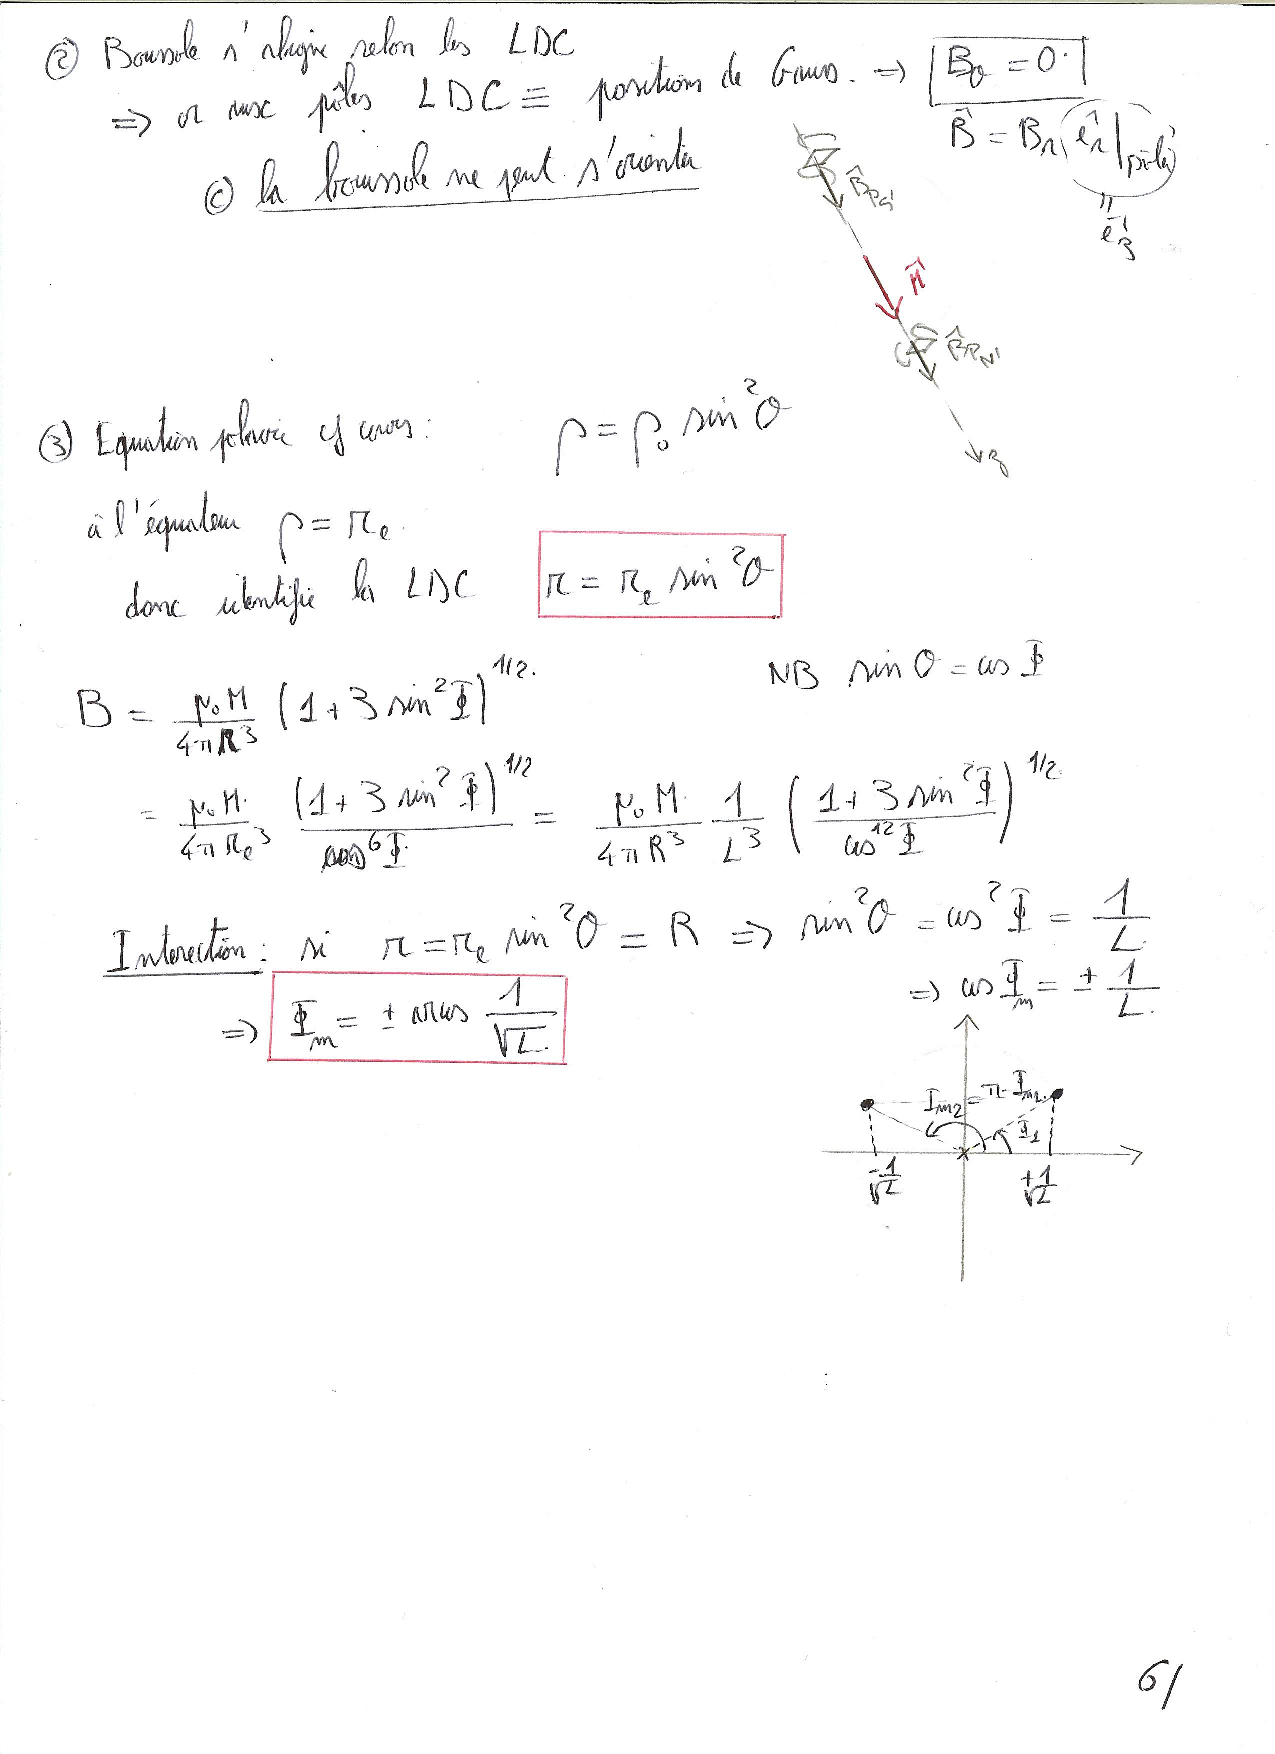 ② Boussole s'aligne selon les LDC
⇒ or aux pôles LDC ≡ positions de Gauss. ⇒ B_θ = 0.
B⃗ = B_r e⃗_r |pôles
"
e⃗_z
© la boussole ne peut s'orienter
B⃗_PS'
M⃗
B⃗_PN'
z
③ Equation polaire cf cours : ρ = ρ₀ sin²θ
à l'équateur ρ = r_e.
donc identifie la LDC r = r_e sin²θ
NB sin θ = cos Φ
B = μ₀M/4πR³ (1 + 3 sin²Φ)^1/2.
= μ₀M/4πr_e³ (1 + 3 sin²Φ)^1/2/cos⁶Φ = μ₀M/4πR³ 1/L³ ((1 + 3 sin²Φ)/cos¹²Φ)^1/2.
Intersection : si r = r_e sin²θ = R ⇒ sin²θ = cos²Φ = 1/L.
⇒ cos Φ_m = ± 1/L.
⇒ Φ_m = ± arcos 1/√L.
Φ_m2 = π - Φ_m1
Φ_1
-1/√L
+1/√L
6/